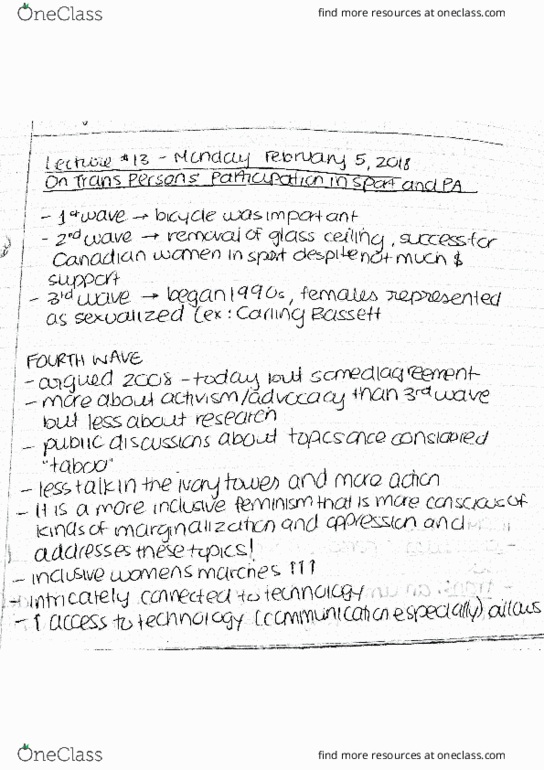 OneClass
find more resources at oneclass.com
Lecture #13 - Monday February 5, 2018
On Trans Persons' Participation in Sport and PA
- 1st wave → bicycle was important
- 2nd wave → removal of glass ceiling, success for
Canadian women in sport despite not much $
support
- 3rd wave → began 1990s, females represented
as sexualized (ex: Carling Bassett
FOURTH WAVE
- argued 2008 - today but some diagreement
- more about activism/advocacy than 3rd wave
but less about research
- public discussions about topics once considered
"taboo"
- less talk in the ivory tower and more action
- It is a more inclusive feminism that is more conscious of
kinds of marginalization and oppression and
addresses these topics!
- inclusive womens marches !!!
- intricately connected to technology
- ↑ access to technology (communication especially) allows
OneClass
find more resources at oneclass.com